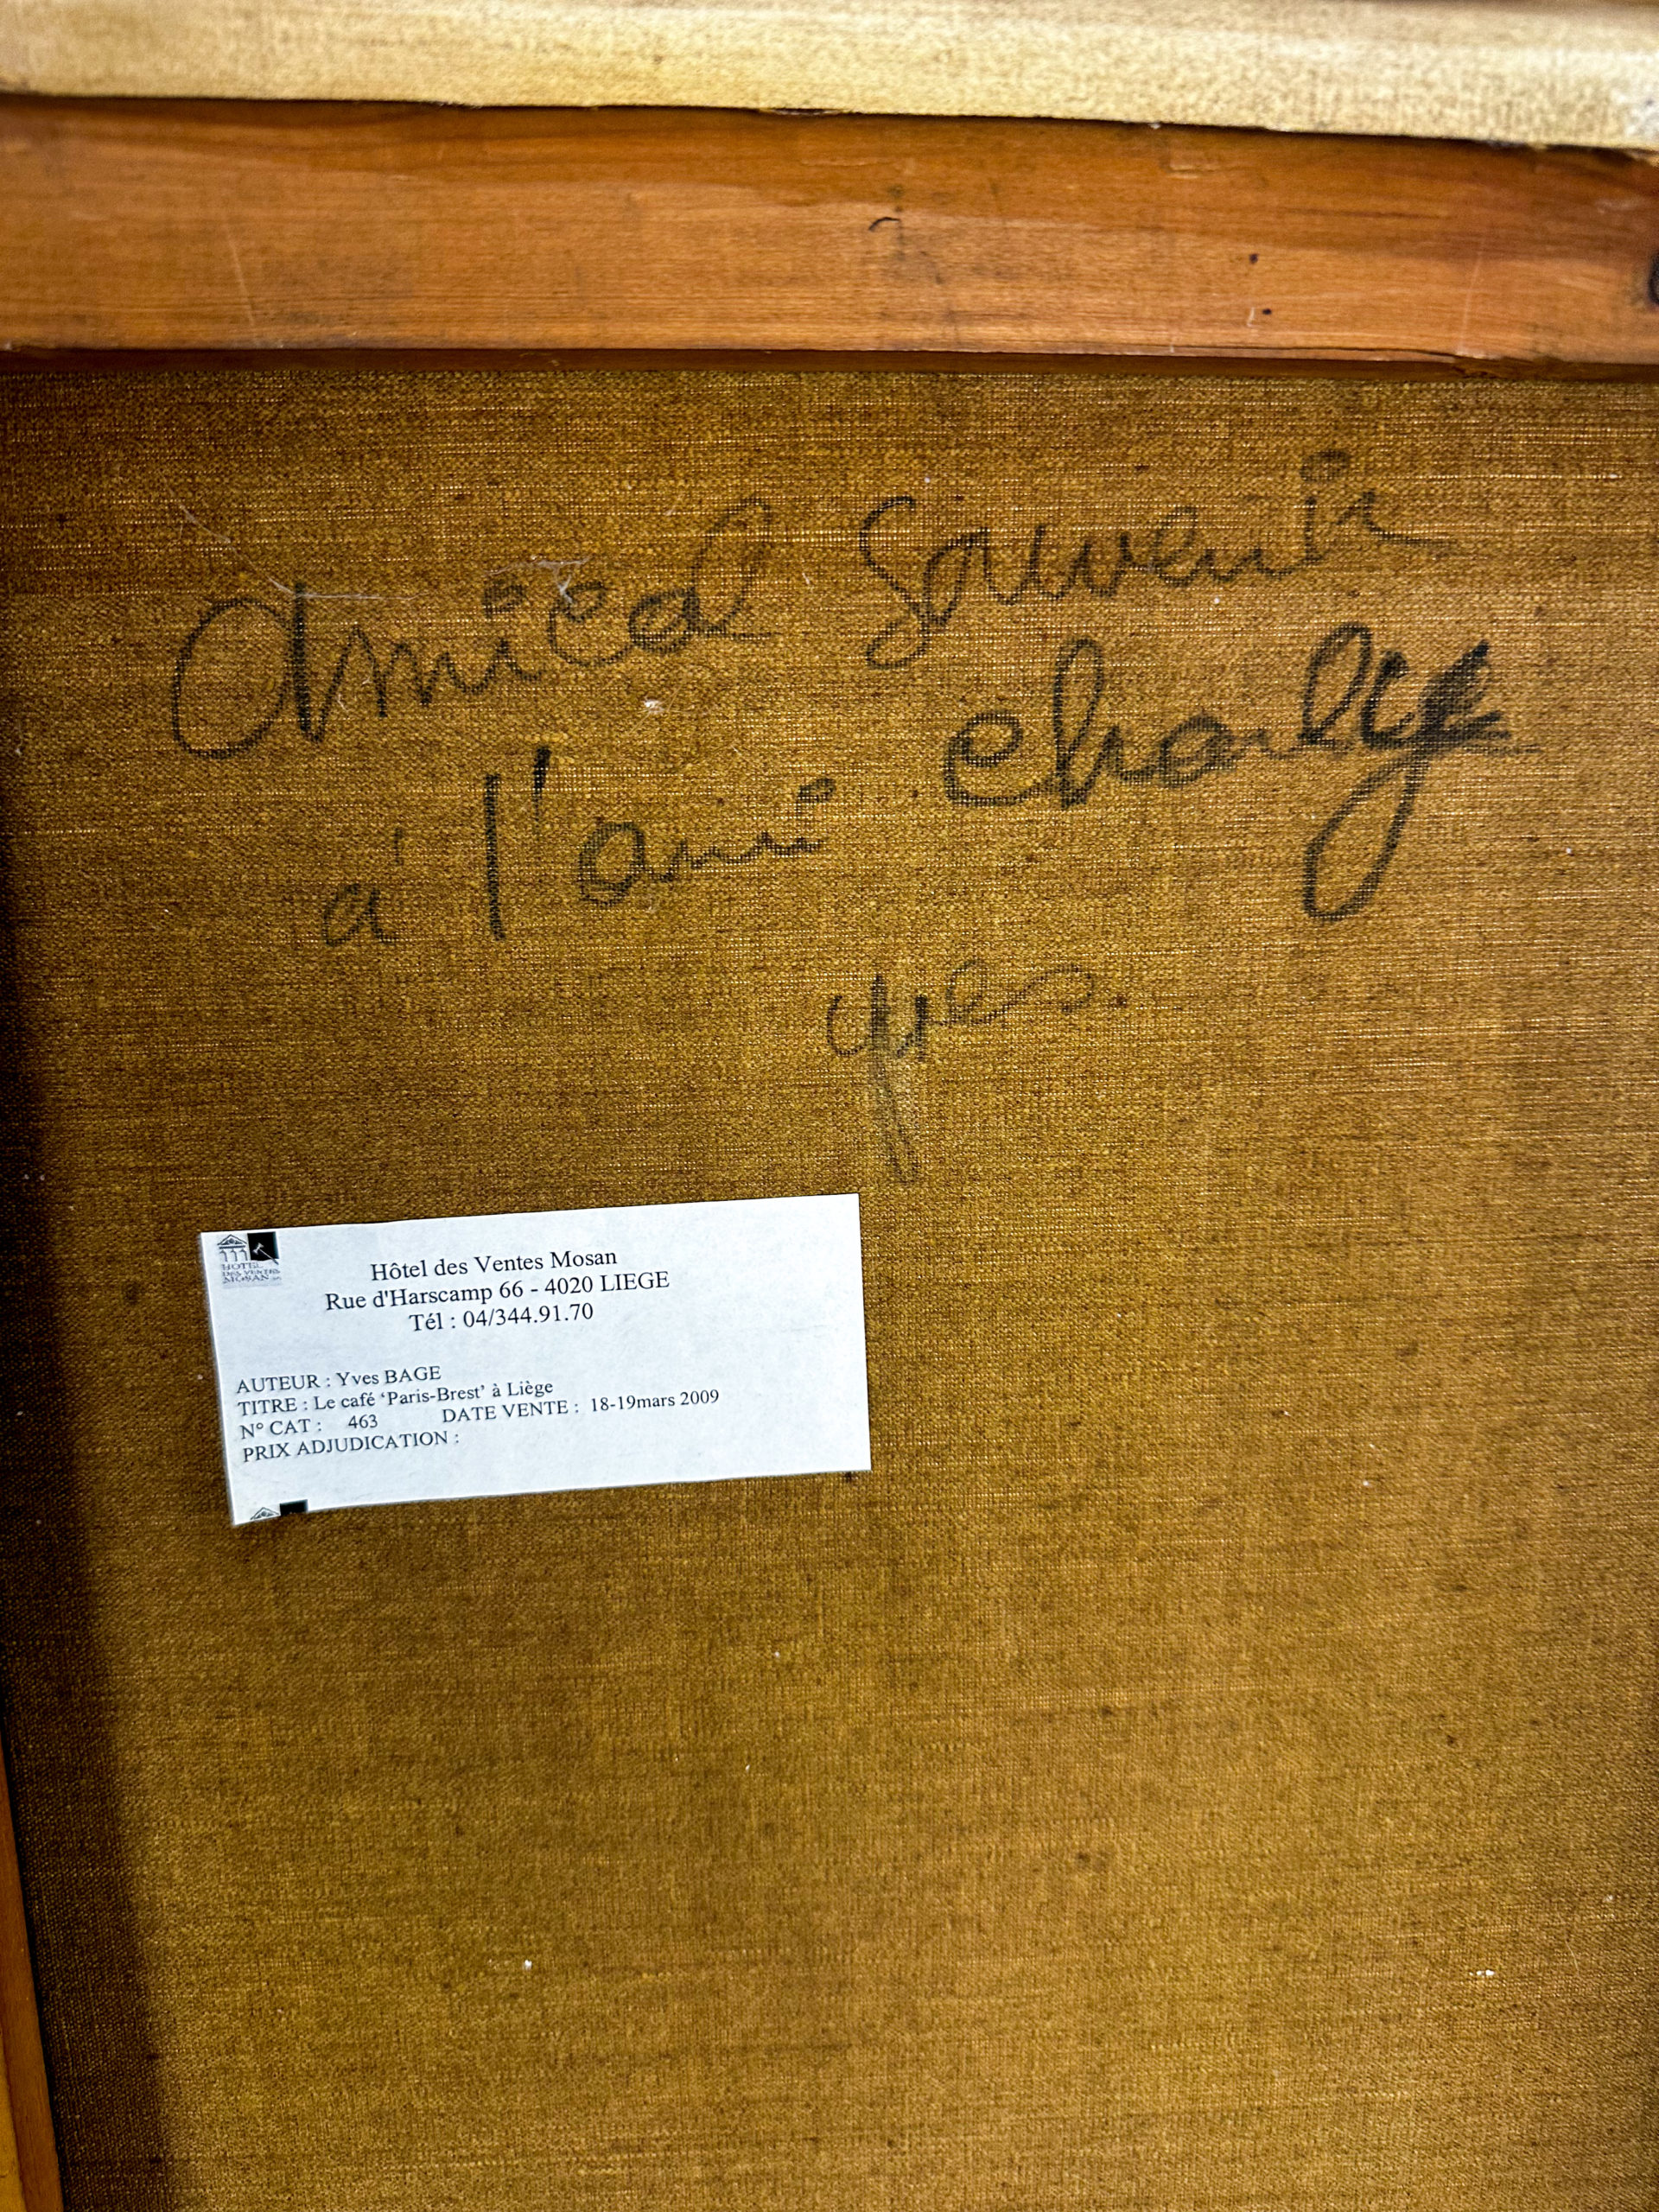 Amical Souvenir
à l'ami Charly
Yves
HOTEL
DES VENTES
MOSAN
Hôtel des Ventes Mosan
Rue d'Harscamp 66 - 4020 LIEGE
Tél : 04/344.91.70
AUTEUR : Yves BAGE
TITRE : Le café ‘Paris-Brest’ à Liège
N° CAT : 463 DATE VENTE : 18-19mars 2009
PRIX ADJUDICATION :